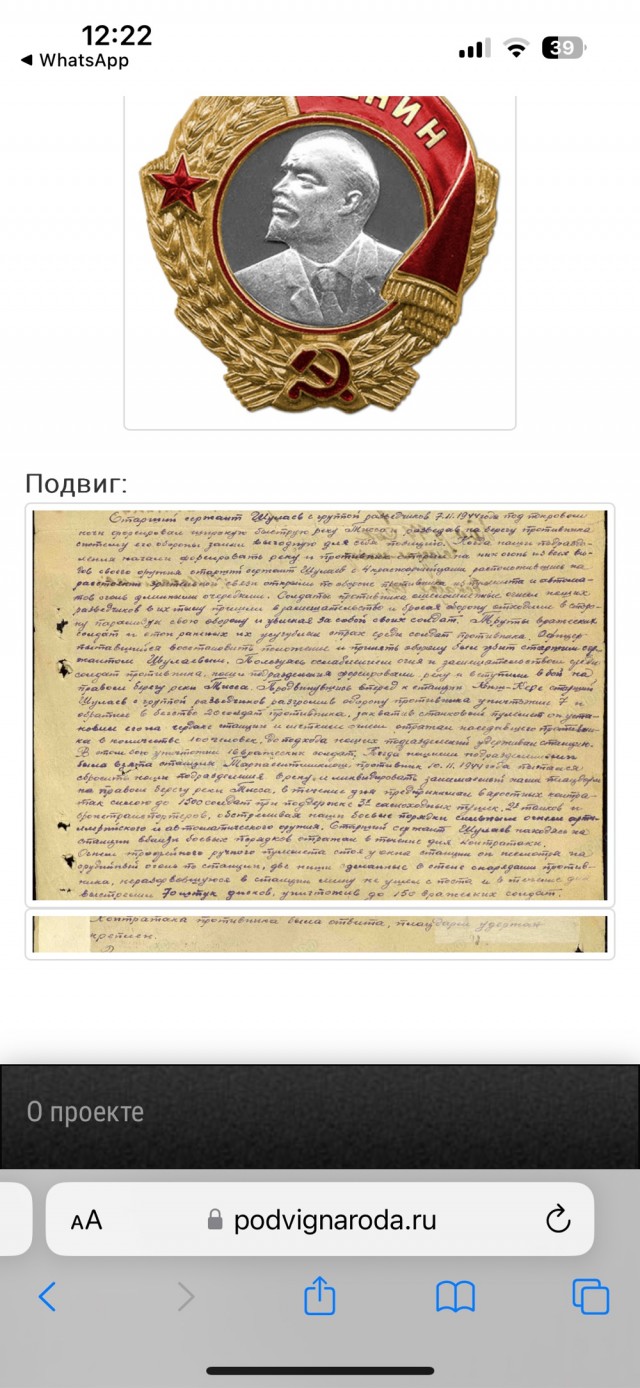 12:22
39
WhatsApp
ЕНИН
Подвиг:
Старший сержант Шулаев с группой разведчиков 7.11.1944 года под покровом
ночи форсировал широкую быструю реку Тисса и разведав на берегу противника
систему его обороны занял выгодную для себя позицию. Когда наши подразде-
ления начали форсировать реку и противник открыл на них огонь из всех ви-
дов своего оружия старший сержант Шулаев с красноармейцами расположившись на
расстоянии зрительной связи открыли по обороне противника из пулемета и автома-
тов огонь длинными очередями. Солдаты противника ошеломленные огнем наших
разведчиков в их тылу пришли в замешательство и бросая оборону отходили в сторо-
ну парализуя свою оборону и увлекая за собой своих солдат. Трупы вражеских
солдат и стон раненых их усугубили страх среди солдат противника. Офицер
пытавшийся восстановить положение и принять оборону был убит старшим сер-
жантом Шулаевым. Пользуясь ослаблением огня и замешательством среди
солдат противника, наши подразделения форсировали реку и вступили в бой на
правом берегу реки Тисса. Продвинувшись вперед к станции старший
Шулаев с группой разведчиков разгромив оборону противника уничтожил 7 и
обратил в бегство солдат противника, захватив станковый пулемет он уста-
новил его на чердаке станции и метким огнем отражал наседавшего противни-
ка в количестве 100 человек, до подхода наших подразделений удерживал станцию.
В этом бою уничтожил 16 вражеских солдат. Когда нашими подразделениями
была взята станция противник 10.11.1944 года пытался
сбросить наши подразделения в реку и ликвидировать занимаемый нами плацдарм
на правом берегу реки Тисса, в течение дня предпринимал яростных контра-
так силою до 1500 солдат при поддержке 3х самоходных пушек, 2х танков и
бронетранспортеров, обстреливая наши боевые порядки сильным огнем арти-
ллерийского и автоматического оружия. Старший сержант Шулаев находясь на
станции вблизи боевых порядков отражал в течение дня контратаки.
Огнем трофейного ручного пулемета стоя у окна станции он несмотря на
орудийный огонь по станции, две ниши сделанные в стене снарядами против-
ника, неразорвавшуюся в станции мину не ушел с поста и в течение дня
выстрелил 70 штук дисков, уничтожив до 150 вражеских солдат.
Контратака противника была отбита, плацдарм удержан
О проекте
AA
podvignaroda.ru